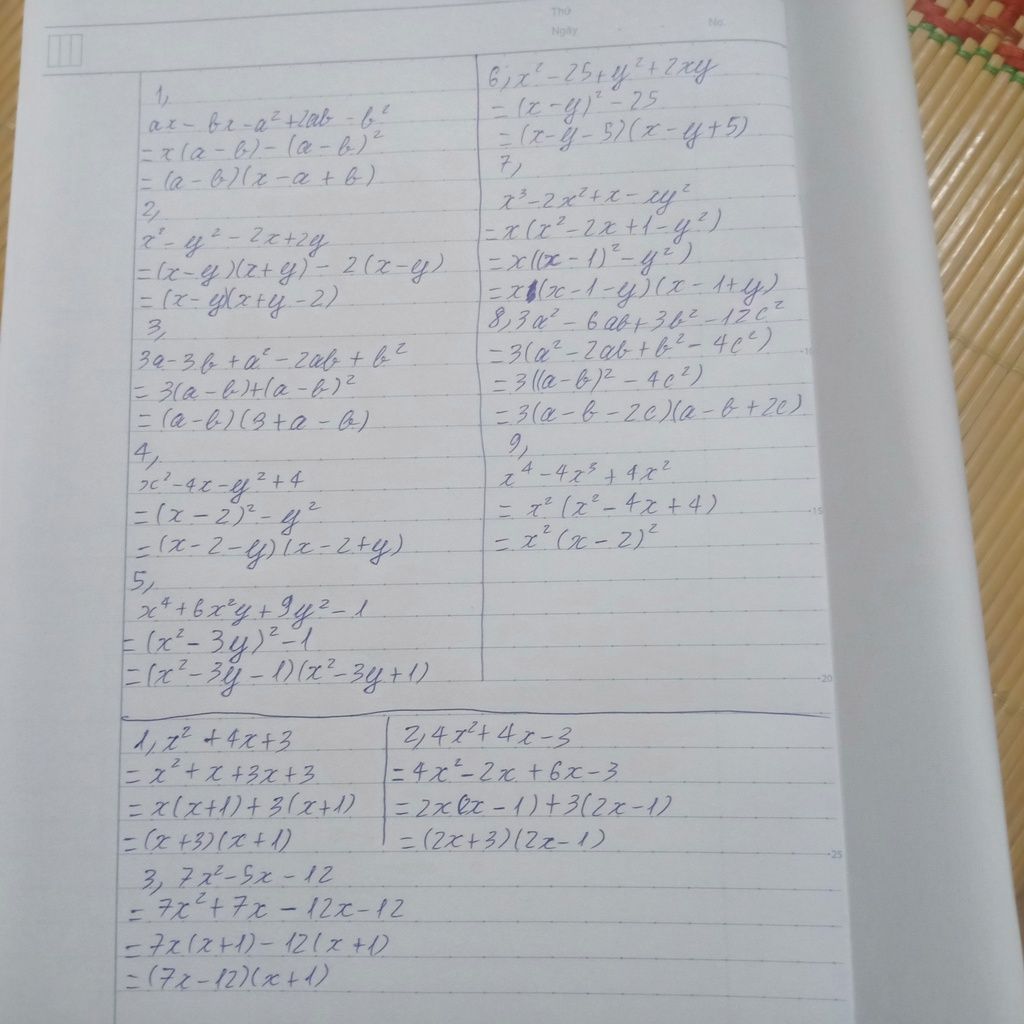 Thứ
Ngày
No.
1,
ax - bx - a² + 2ab - b²
= x(a - b) - (a - b)²
= (a - b)(x - a + b)
2,
x² - y² - 2x + 2y
= (x - y)(x + y) - 2(x - y)
= (x - y)(x + y - 2)
3,
3a - 3b + a² - 2ab + b²
= 3(a - b) + (a - b)²
= (a - b)(3 + a - b)
4,
x² - 4x - y² + 4
= (x - 2)² - y²
= (x - 2 - y)(x - 2 + y)
5,
x⁴ + 6x²y + 9y² - 1
= (x² - 3y)² - 1
= (x² - 3y - 1)(x² - 3y + 1)
6, x² - 25 + y² + 2xy
= (x - y)² - 25
= (x - y - 5)(x - y + 5)
7,
x³ - 2x² + x - xy²
= x(x² - 2x + 1 - y²)
= x((x - 1)² - y²)
= x(x - 1 - y)(x - 1 + y)
8, 3a² - 6ab + 3b² - 12c²
= 3(a² - 2ab + b² - 4c²)
= 3((a - b)² - 4c²)
= 3(a - b - 2c)(a - b + 2c)
9,
x⁴ - 4x³ + 4x²
= x²(x² - 4x + 4)
= x²(x - 2)²
10
15
20
1, x² + 4x + 3
= x² + x + 3x + 3
= x(x + 1) + 3(x + 1)
= (x + 3)(x + 1)
2, 4x² + 4x - 3
= 4x² - 2x + 6x - 3
= 2x(2x - 1) + 3(2x - 1)
= (2x + 3)(2x - 1)
25
3, 7x² - 5x - 12
= 7x² + 7x - 12x - 12
= 7x(x + 1) - 12(x + 1)
= (7x - 12)(x + 1)